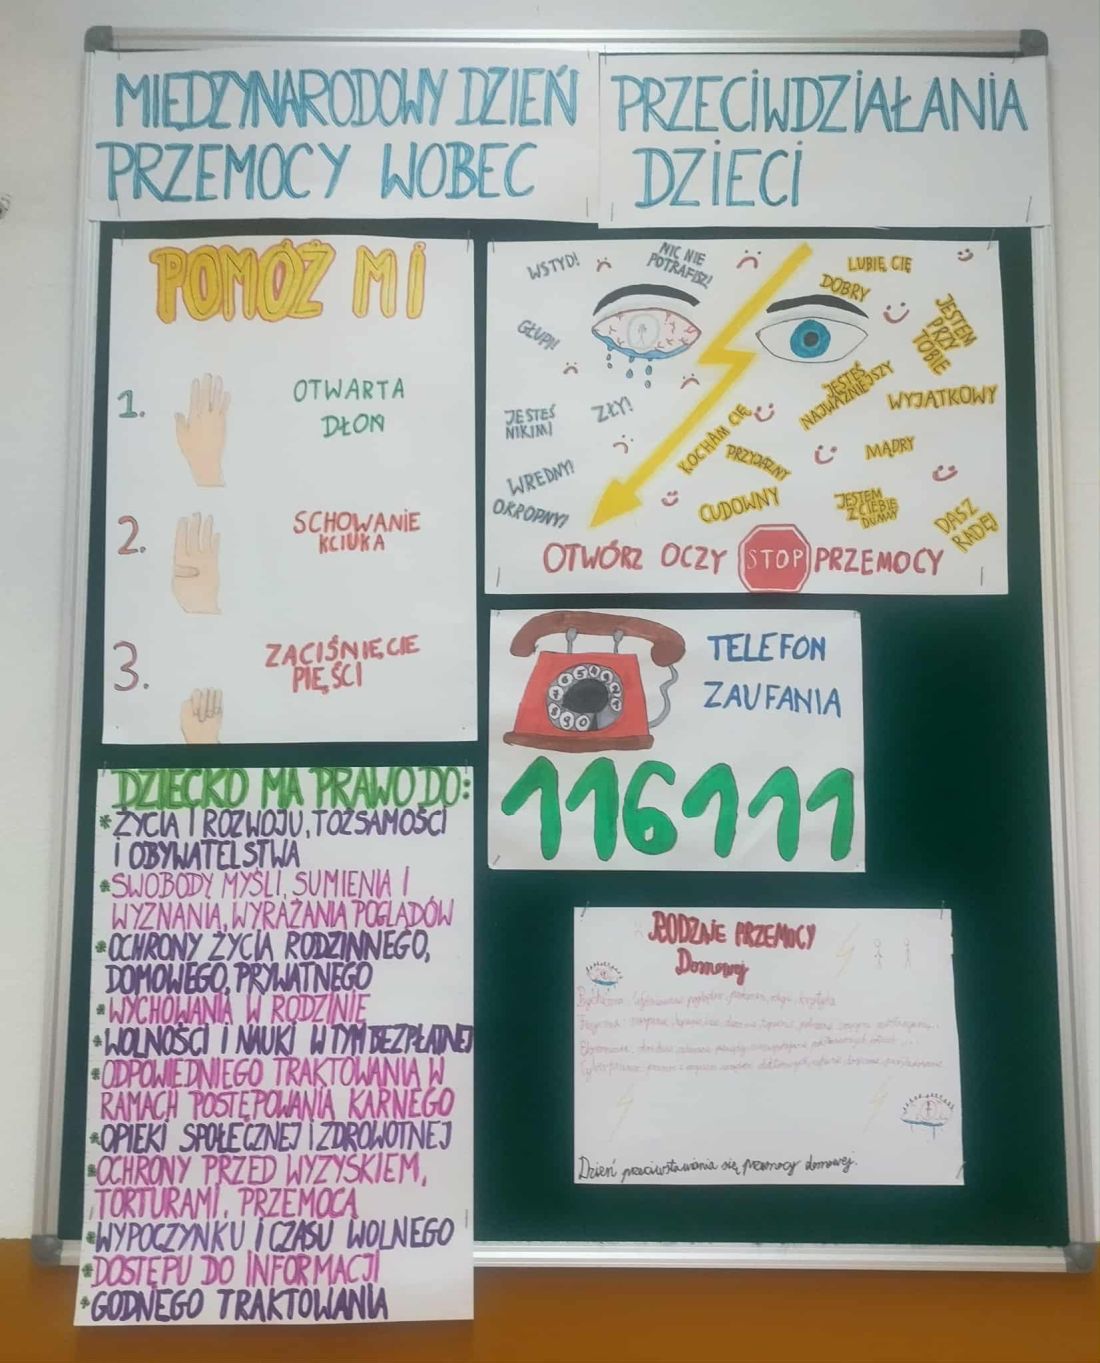 MIĘDZYNARODOWY DZIEŃ PRZECIWDZIAŁANIA
PRZEMOCY WOBEC DZIECI
POMÓŻ MI
1. OTWARTA
DŁOŃ
2. SCHOWANIE
KCIUKA
3. ZACIŚNIĘCIE
PIĘŚCI
WSTYD!
NIC NIE
POTRAFISZ!
GŁUPI!
JESTEŚ
NIKIM!
ZŁY!
WREDNY!
OKROPNY!
LUBIĘ CIĘ
DOBRY
JESTEM
PRZY
TOBIE
JESTEŚ
NAJWAŻNIEJSZY
WYJĄTKOWY
KOCHAM CIĘ
PRZYJAZNY
MĄDRY
CUDOWNY
JESTEM
Z CIEBIE
DUMNY
DASZ
RADĘ!
OTWÓRZ OCZY STOP PRZEMOCY
TELEFON
ZAUFANIA
116111
DZIECKO MA PRAWO DO:
* ŻYCIA I ROZWOJU, TOŻSAMOŚCI
I OBYWATELSTWA
* SWOBODY MYŚLI, SUMIENIA I
WYZNANIA, WYRAŻANIA POGLĄDÓW
* OCHRONY ŻYCIA RODZINNEGO,
DOMOWEGO, PRYWATNEGO
* WYCHOWANIA W RODZINIE
* WOLNOŚCI I NAUKI W TYM BEZPŁATNEJ
* ODPOWIEDNIEGO TRAKTOWANIA W
RAMACH POSTĘPOWANIA KARNEGO
* OPIEKI SPOŁECZNEJ I ZDROWOTNEJ
* OCHRONY PRZED WYZYSKIEM,
TORTURAMI, PRZEMOCĄ
* WYPOCZYNKU I CZASU WOLNEGO
* DOSTĘPU DO INFORMACJI
* GODNEGO TRAKTOWANIA
RODZAJE PRZEMOCY
Domowej
Dzień przeciwstawania się przemocy domowej.